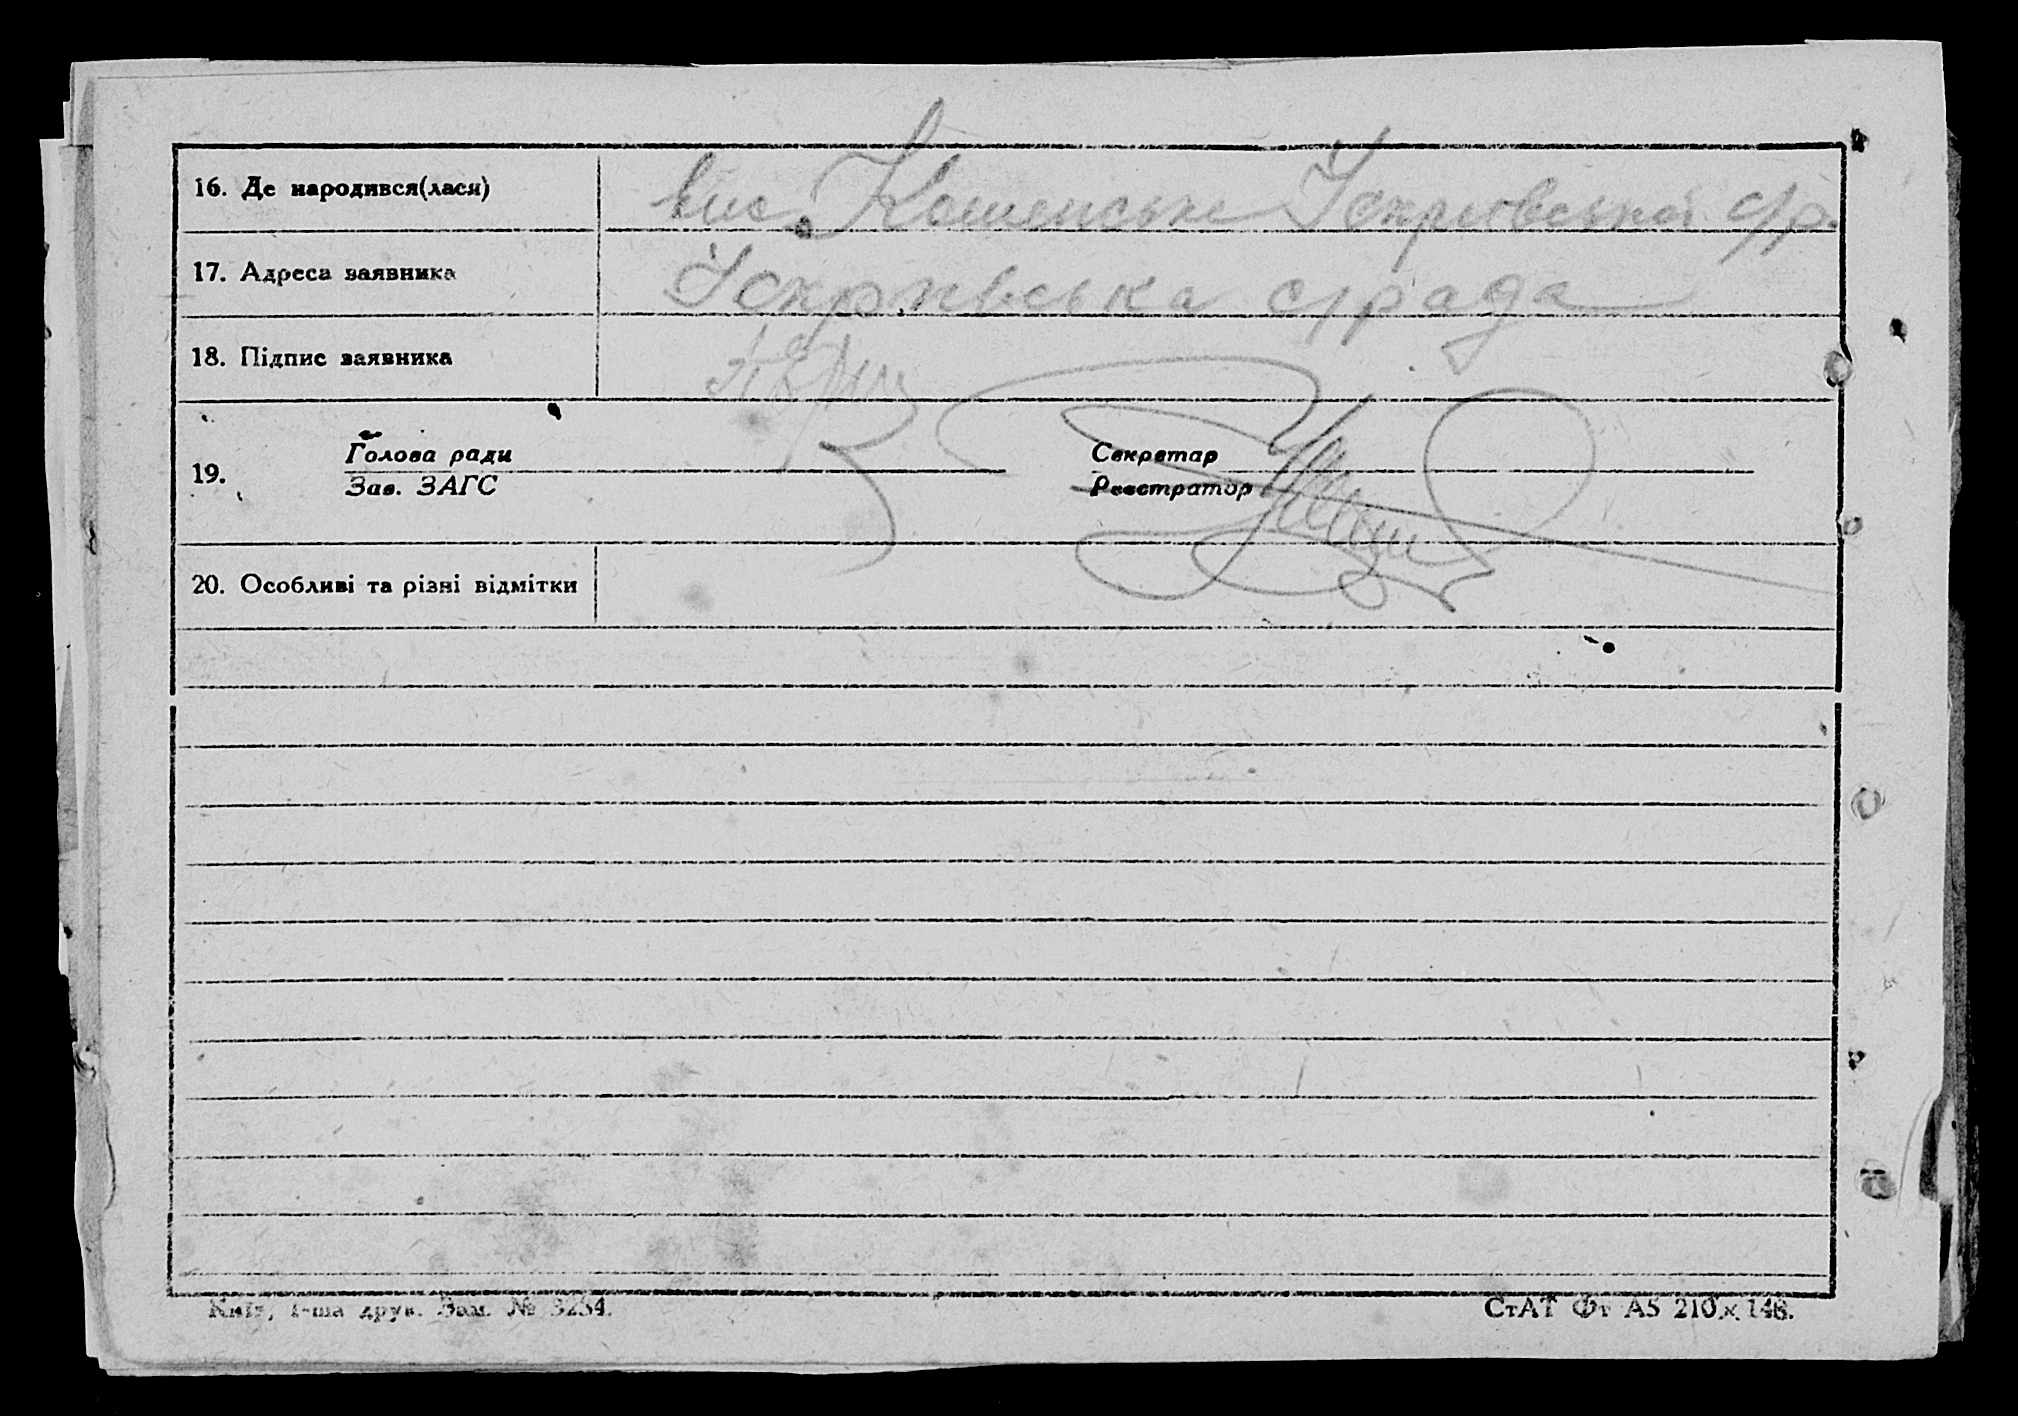 16. Де народився(лася) вис. Каменське Іскрівської с/р.
17. Адреса заявника Іскрівська с/рада
18. Підпис заявника
19. Голова ради Секретар
Зав. ЗАГС Реєстратор
20. Особливі та різні відмітки
Київ, 1-ша друк. Зам. № 3254. СтАТ Фт А5 210 х 148.